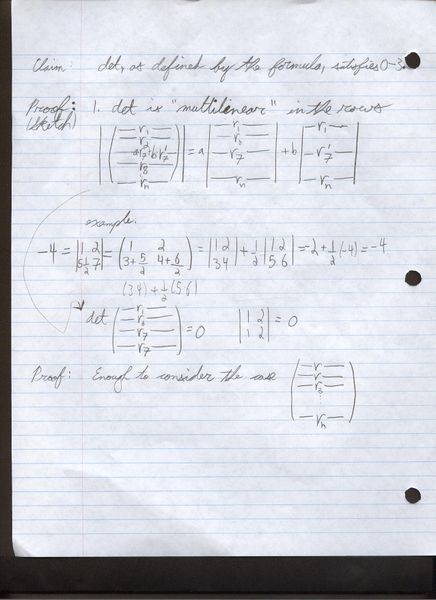 Claim: det, as defined by the formula, satisfies 0-3.
Proof: 1. det is "multilinear" in the rows
(sketch)
|( —r1— —r2— ar7+br7' —r8— —rn— )| = a | —r1— —r2— —r7— —rn— | + b | —r1— —r7'— —rn— |
example.
-4 = |1 2 5½ 7| = (1 2 3+5/2 4+6/2) = |1 2 3 4| + 1/2 |1 2 5 6| = -2 + 1/2 (-4) = -4
(3 4) + 1/2 (5 6)
det ( —r1— —r2— —r7— —r7— ) = 0 |1 2 1 2| = 0
Proof: Enough to consider the case ( —r— —r— —r3— ⋮ —rn— )